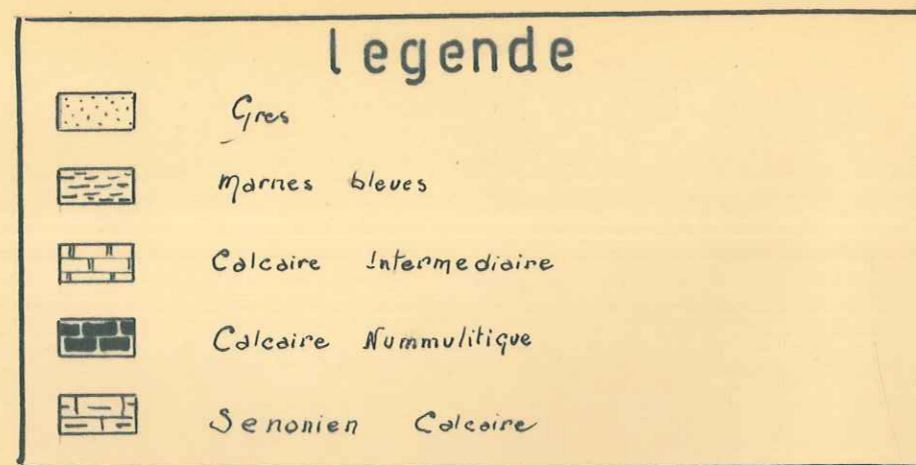 legende
Gres
Marnes bleues
Calcaire Intermediaire
Calcaire Nummulitique
Senonien Calcaire